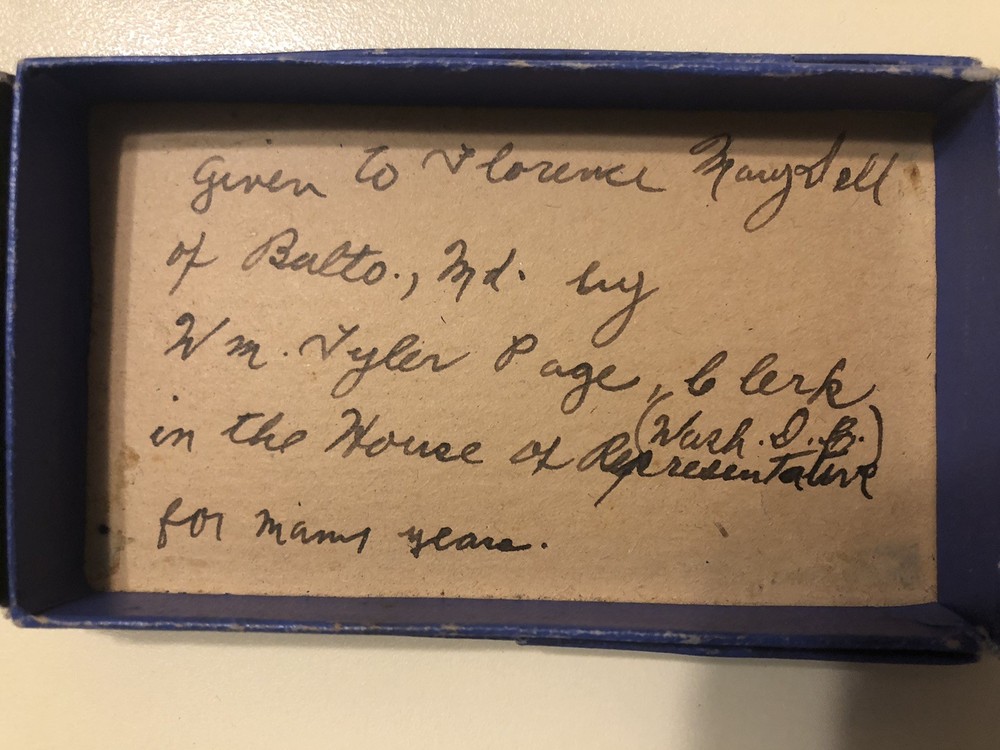 Given to Florence Marydell
of Balto., Md. by
Wm. Tyler Page, Clerk
(Wash. D.C.)
in the House of Representative
for many years.